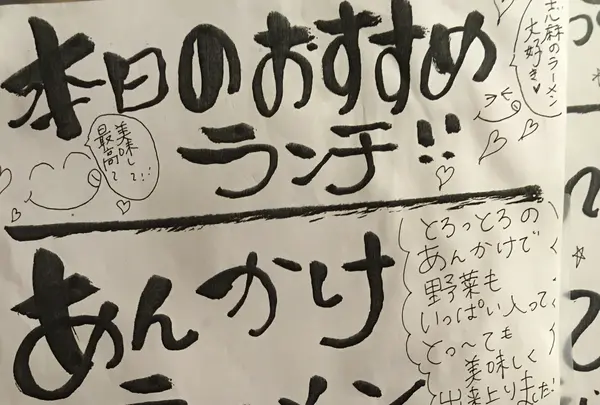 本日のおすすめ
ランチ!!
志麻のラーメン
大好き♥
美味して
最高
あんかけ
ラーメン
とろっとろの
あんかけで
野菜も
いっぱい入って
とっ〜ても
美味しく
出来上りました!